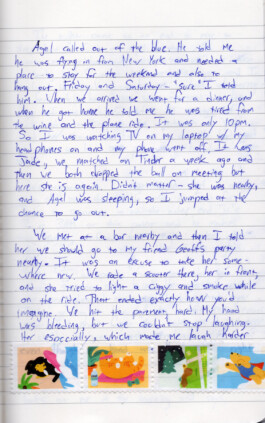 Agel called out of the blue. He told me
he was flying in from New York and needed a
place to stay for the weekend and also to
hang out. Friday and Saturday - "sure" I told
him. When he arrived we went for a dinner, and
when he got home he told me he was tired from
the wine and the plane ride. It was only 10pm.
So I was watching TV on my laptop w/ my
headphones on and my phone went off. It was
Jade, we matched on Tinder a week ago and
then we both dropped the ball on meeting but
here she is again. Didn't matter - she was nearby,
and Agel was sleeping, so I jumped at the
chance to go out.
We met at a bar nearby and then I told
her we should go to my friend Geoff's party
nearby. It was an excuse to take her some-
where new. We rode a scooter there, her in front,
and she tried to light a ciggy and smoke while
on the ride. That ended exactly how you'd
imagine. We hit the pavement, hard. My hand
was bleeding, but we couldn't stop laughing.
Her especially, which made me laugh harder